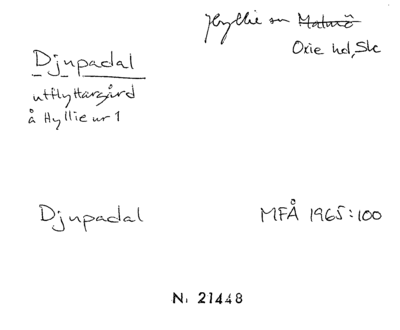 Hyllie sn Malmö
Oxie hd, Sk
Djupadal
utflyttargård
å Hyllie nr 1
Djupadal
MFÅ 1965:100
N: 21448